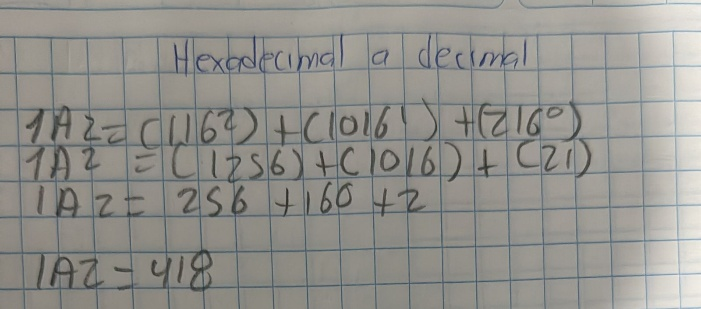 Hexadecimal a decimal
1A2 = (116²) + (1016¹) + (216⁰)
1A2 = (1256) + (1016) + (21)
1A2 = 256 + 160 + 2
1A2 = 418